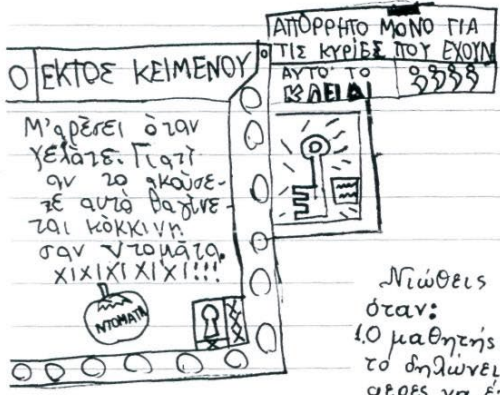 ΑΠΟΡΡΗΤΟ ΜΟΝΟ ΓΙΑ
ΤΙΣ ΚΥΡΙΕΣ ΠΟΥ ΕΧΟΥΝ
ΑΥΤΟ ΤΟ
ΚΛΕΙΔΙ
Ο ΕΚΤΟΣ ΚΕΙΜΕΝΟΥ
Μ'αρέσει όταν
γελάτε. Γιατί
αν το ακούσε-
τε αυτό θα γίνε-
ται κόκκινη
σαν ντομάτα.
ΧΙΧΙΧΙ ΧΙΧΙ!!!
ΝΤΟΜΑΤΑ
Νιώθεις
όταν:
1.Ο μαθητής
το δηλώνει